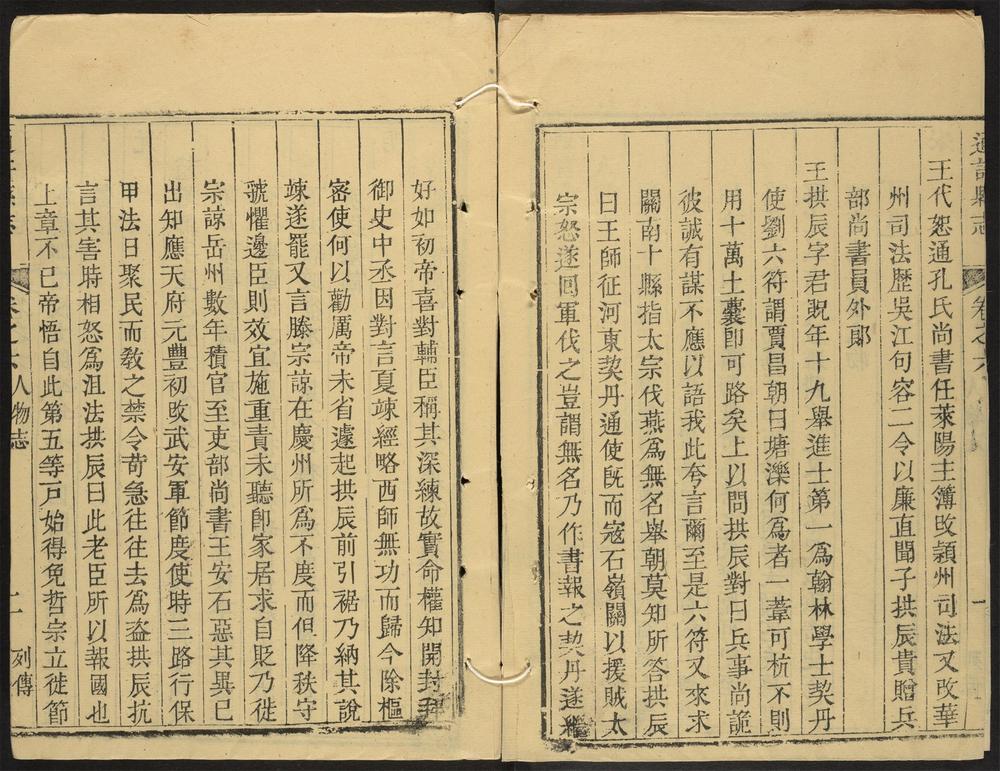 通許縣志
卷之六
一
王代恕通孔氏尚書任萊陽主簿改潁州司法又改華
州司法歷吳江句容二令以廉直聞子拱辰貴贈兵
部尚書員外郞
王拱辰字君貺年十九舉進士第一爲翰林學士契丹
使劉六符謂賈昌朝曰塘濼何爲者一葦可杭不則
用十萬土囊卽可路矣上以問拱辰對曰兵事尚詭
彼誠有謀不應以語我此夸言爾至是六符又來求
關南十縣指太宗伐燕爲無名舉朝莫知所答拱辰
曰王師征河東契丹通使旣而寇石嶺關以援賊太
宗怒遂囘軍伐之豈謂無名乃作書報之契丹遂繼
好如初帝喜對輔臣稱其深練故實命權知開封
御史中丞因對言夏竦經略西師無功而歸今除樞
密使何以勸厲帝未省遽起拱辰前引裾乃納其說
竦遂罷又言滕宗諒在慶州所爲不度而但降秩守
虢懼邊臣則效宜施重責未聽卽家居求自貶乃徙
宗諒岳州數年積官至吏部尚書王安石惡其異己
出知應天府元豐初改武安軍節度使時三路行保
甲法日聚民而敎之禁令苛急往往去爲盗拱辰抗
言其害時相怒爲沮法拱辰曰此老臣所以報國也
上章不已帝悟自此第五等戶始得免哲宗立徙節
卷之六 人物志
二
列傳